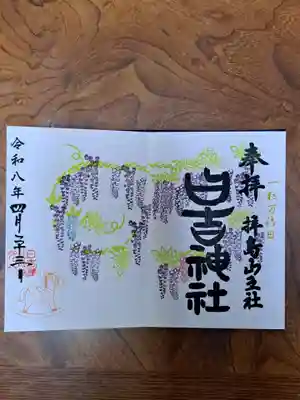 奉拝
一粒万倍日
拝島山王社
日吉神社
令和八年四月二十三日